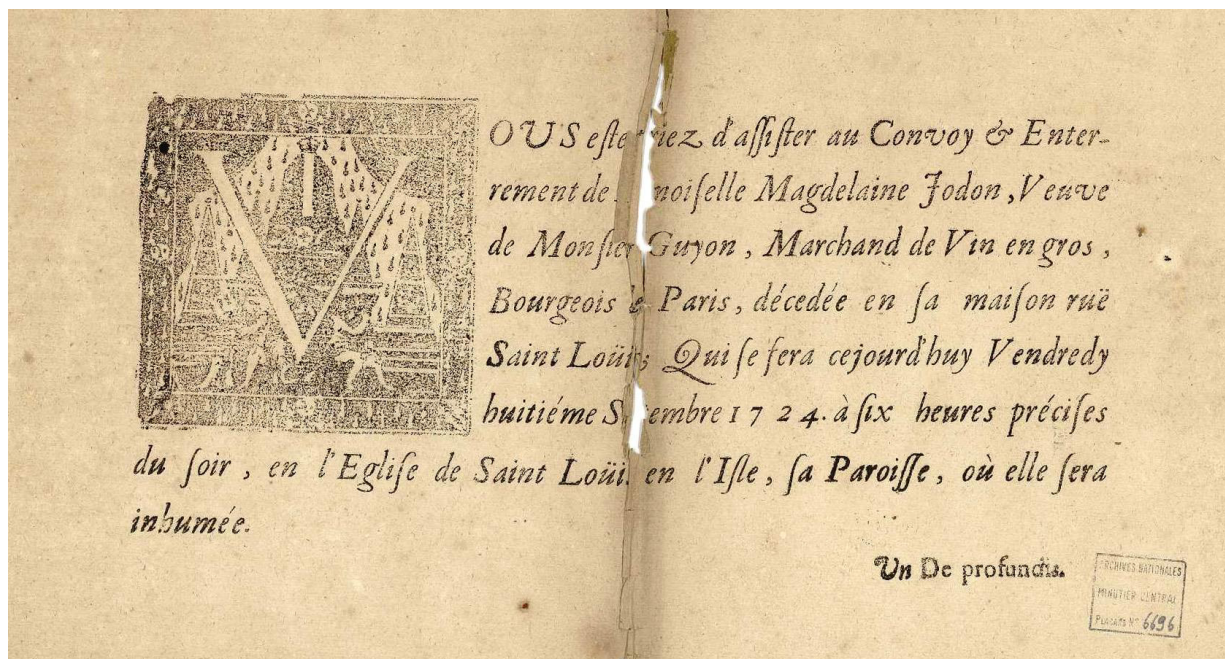 VOUS este priez d'aſſiſter au Convoy & Enter-
rement de noiſelle Magdelaine Jodon, Veuve
de Monſier Guyon, Marchand de Vin en gros,
Bourgeois de Paris, décedée en ſa maiſon ruë
Saint Loüis; Qui ſe fera cejourd'huy Vendredy
huitiéme Setembre 1724. à ſix heures préciſes
du ſoir, en l'Egliſe de Saint Loüis en l'Iſle, ſa Paroiſſe, où elle ſera
inhumée.
Un De profundis.
ARCHIVES NATIONALES
MINUTIER CENTRAL
PLACARD N° 6696